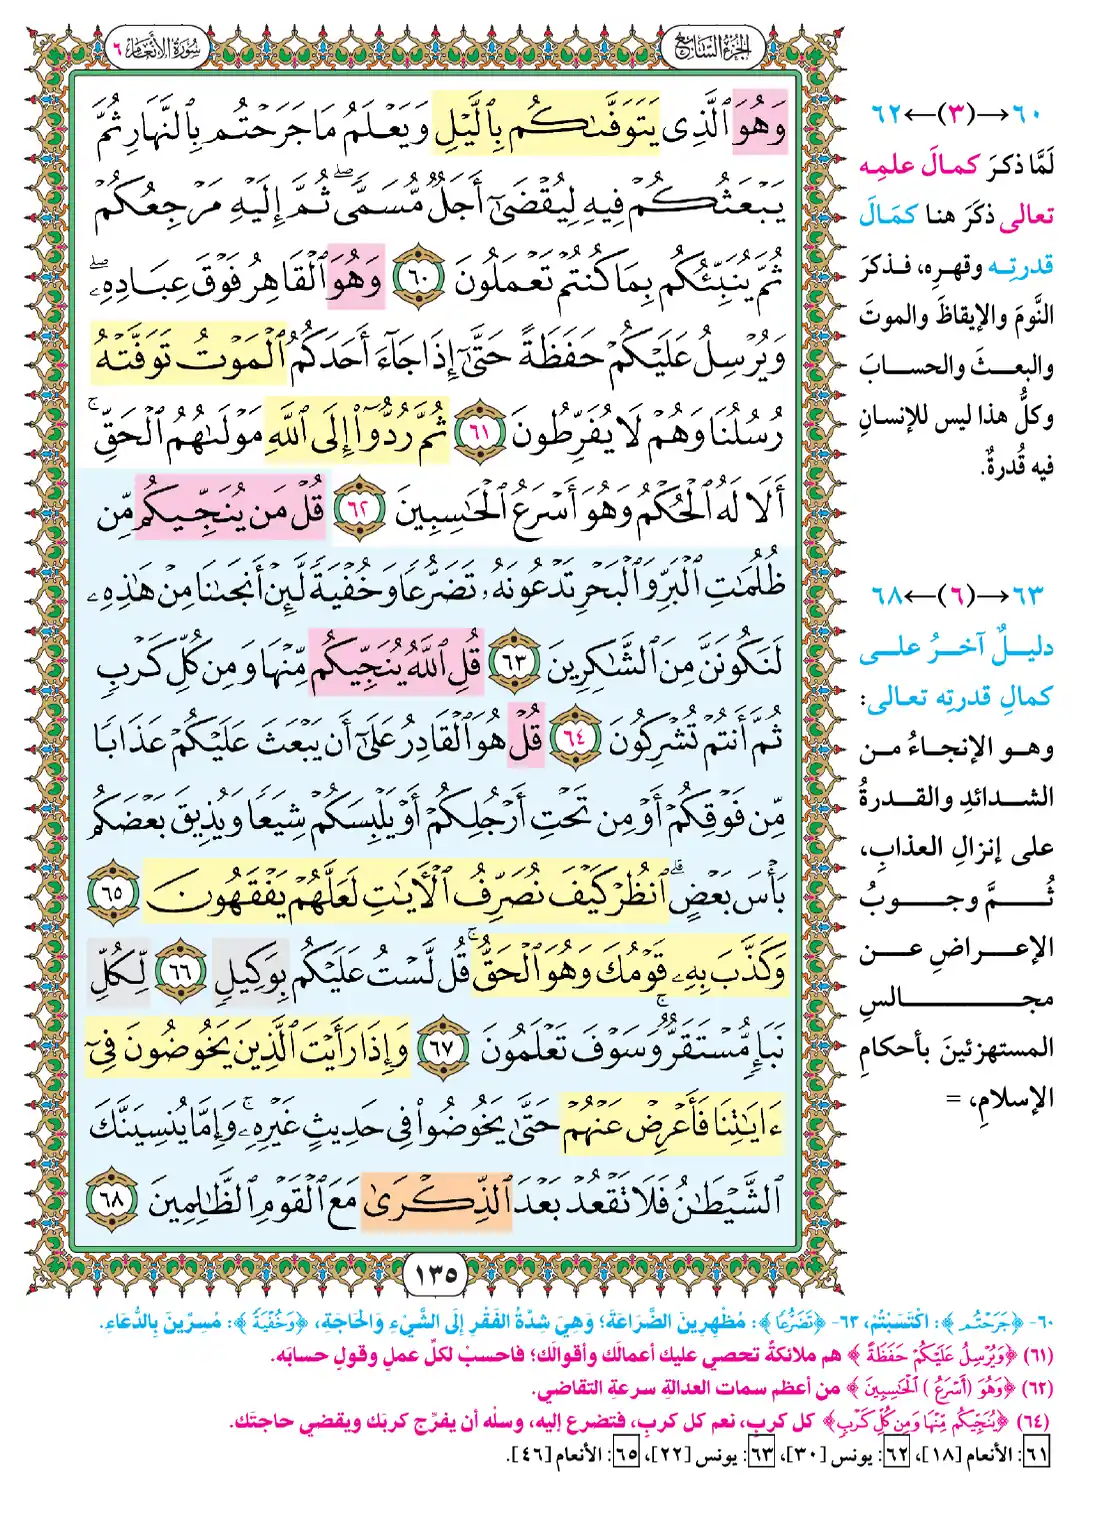 الجزء السابع
سورة الأنعام ٦
وَهُوَ ٱلَّذِى يَتَوَفَّىٰكُم بِٱلَّيْلِ وَيَعْلَمُ مَا جَرَحْتُم بِٱلنَّهَارِ ثُمَّ
يَبْعَثُكُمْ فِيهِ لِيُقْضَىٰٓ أَجَلٌ مُّسَمًّى ۖ ثُمَّ إِلَيْهِ مَرْجِعُكُمْ
ثُمَّ يُنَبِّئُكُم بِمَا كُنتُمْ تَعْمَلُونَ ٦٠ وَهُوَ ٱلْقَاهِرُ فَوْقَ عِبَادِهِۦ ۖ
وَيُرْسِلُ عَلَيْكُمْ حَفَظَةً حَتَّىٰٓ إِذَا جَآءَ أَحَدَكُمُ ٱلْمَوْتُ تَوَفَّتْهُ
رُسُلُنَا وَهُمْ لَا يُفَرِّطُونَ ٦١ ثُمَّ رُدُّوٓا۟ إِلَى ٱللَّهِ مَوْلَىٰهُمُ ٱلْحَقِّ ۚ
أَلَا لَهُ ٱلْحُكْمُ وَهُوَ أَسْرَعُ ٱلْحَـٰسِبِينَ ٦٢ قُلْ مَن يُنَجِّيكُم مِّن
ظُلُمَـٰتِ ٱلْبَرِّ وَٱلْبَحْرِ تَدْعُونَهُۥ تَضَرُّعًا وَخُفْيَةً لَّئِنْ أَنجَىٰنَا مِنْ هَـٰذِهِۦ
لَنَكُونَنَّ مِنَ ٱلشَّـٰكِرِينَ ٦٣ قُلِ ٱللَّهُ يُنَجِّيكُم مِّنْهَا وَمِن كُلِّ كَرْبٍ
ثُمَّ أَنتُمْ تُشْرِكُونَ ٦٤ قُلْ هُوَ ٱلْقَادِرُ عَلَىٰٓ أَن يَبْعَثَ عَلَيْكُمْ عَذَابًا
مِّن فَوْقِكُمْ أَوْ مِن تَحْتِ أَرْجُلِكُمْ أَوْ يَلْبِسَكُمْ شِيَعًا وَيُذِيقَ بَعْضَكُم
بَأْسَ بَعْضٍ ۗ ٱنظُرْ كَيْفَ نُصَرِّفُ ٱلْـَٔايَـٰتِ لَعَلَّهُمْ يَفْقَهُونَ ٦٥
وَكَذَّبَ بِهِۦ قَوْمُكَ وَهُوَ ٱلْحَقُّ ۚ قُل لَّسْتُ عَلَيْكُم بِوَكِيلٍ ٦٦ لِّكُلِّ
نَبَإٍ مُّسْتَقَرٌّ ۚ وَسَوْفَ تَعْلَمُونَ ٦٧ وَإِذَا رَأَيْتَ ٱلَّذِينَ يَخُوضُونَ فِىٓ
ءَايَـٰتِنَا فَأَعْرِضْ عَنْهُمْ حَتَّىٰ يَخُوضُوا۟ فِى حَدِيثٍ غَيْرِهِۦ ۚ وَإِمَّا يُنسِيَنَّكَ
ٱلشَّيْطَـٰنُ فَلَا تَقْعُدْ بَعْدَ ٱلذِّكْرَىٰ مَعَ ٱلْقَوْمِ ٱلظَّـٰلِمِينَ ٦٨
١٣٥
٦٠→(٣)←٦٢
لَمَّا ذكرَ كمالَ علمِه
تعالى ذكَرَ هنا كمَالَ
قدرتِه وقهرِه، فذكرَ
النَّومَ والإيقاظَ والموتَ
والبعثَ والحسابَ
وكلُّ هذا ليس للإنسانِ
فيه قُدرةٌ.
٦٣→(٦)←٦٨
دليلٌ آخرُ على
كمالِ قدرتِه تعالى:
وهو الإنجاءُ من
الشدائدِ والقدرةُ
على إنزالِ العذابِ،
ثُمَّ وجوبُ
الإعراضِ عن
مجالسِ
المستهزئينَ بأحكامِ
الإسلامِ، =
٦٠- ﴿جَرَحْتُم﴾: اكْتَسَبْتُمْ، ٦٣- ﴿تَضَرُّعًا﴾: مُظْهِرِينَ الضَّرَاعَةَ؛ وَهِيَ شِدَّةُ الفَقْرِ إِلَى الشَّيْءِ وَالحَاجَةِ، ﴿وَخُفْيَةً﴾: مُسِرِّينَ بِالدُّعَاءِ.
(٦١) ﴿وَيُرْسِلُ عَلَيْكُمْ حَفَظَةً﴾ هم ملائكةٌ تحصي عليك أعمالَك وأقوالَك؛ فاحسبْ لكلِّ عملٍ وقولٍ حسابَه.
(٦٢) ﴿وَهُوَ (أَسْرَعُ) ٱلْحَـٰسِبِينَ﴾ من أعظم سمات العدالةِ سرعةِ التقاضي.
(٦٤) ﴿يُنَجِّيكُم مِّنْهَا وَمِن كُلِّ كَرْبٍ﴾ كل كربٍ، نعم كل كربٍ، فتضرع إليه، وسلْه أن يفرِّج كربَك ويقضي حاجتَك.
٦١: الأنعام [١٨]، ٦٢: يونس [٣٠]، ٦٣: يونس [٢٢]، ٦٥: الأنعام [٤٦].